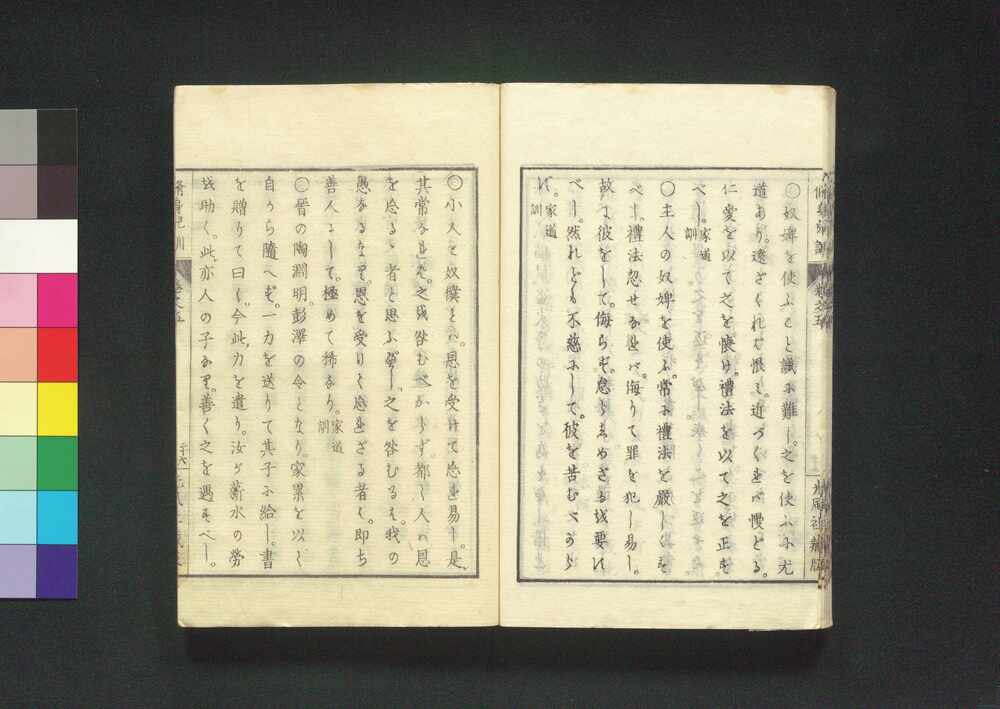 〇奴婢を使ふこと誠に難し。之を使ふに尤
道あり。遠ざくれば恨み。近づくれバ慢どる。
仁愛を以て之を懐け。禮法を以て之を正す
べし。家道訓
〇主人の奴婢を使ふ。常に禮法を嚴しくす
べし。禮法忽せなれバ。侮りて罪を犯し易し。
故に彼をして。侮らず。怠らしめざるを要す
べし。然れども不慈にして。彼を苦むべから
ず。家道訓
〇小人と奴僕とハ。恩を受けて忘れ易し。是
其常なれバ。之を咎むべからず。都て人の恩
を忘るゝ者と思ふべし。之を咎むるは。我の
愚なるなり。恩を受けて忘れざる者は。即ち
善人にして。極めて稀なり。家道訓
〇晉の陶淵明。彭澤の令となり。家累を以て
自から隨へず。一力を送りて其子に給し。書
を贈りて曰く。今此力を遣り。汝が薪水の勞
を助く。此亦人の子なり。善く之を遇すべし。
脩身兒訓
卷之五
二十六